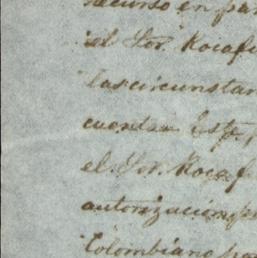 recurso en par
el Sor. Rocafu
las circunstan
cuentra. Este,
el Sor. Rocaf
autorizacion pa
Colombiano para